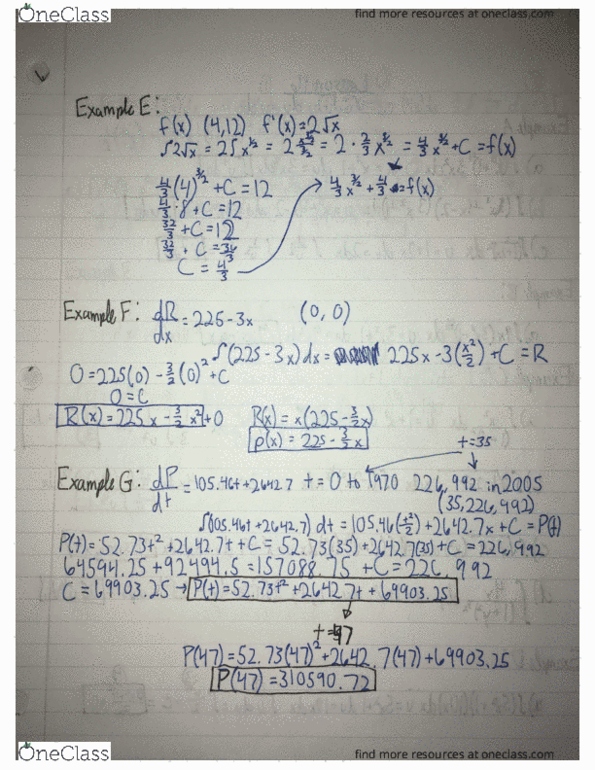 OneClass
find more resources at oneclass.com
Example E:
f(x) (4,12) f'(x)=2√x
∫2√x = 2∫x^½ = = 2 · ⅔x^3/2 = 4/3 x^3/2 + C = f(x)
4/3(4)^3/2 + C = 12
4/3 x^3/2 + 4/3 = f(x)
4/3 · 8 + C = 12
32/3 + C = 12
32/3 + C = 36/3
C = 4/3
Example F: dR/dx = 225-3x (0,0)
∫(225-3x)dx = 225x-3(x²/2)+C = R
0=225(0)-3/2(0)²+C
0=C
R(x)=225x-3/2x²+0
R(x)=x(225-3/2x)
p(x)=225-3/2x
t=35
Example G: dP/dt = 105.46t+2642.7 t=0 to 1970 226,992 in 2005
(35,226,992)
∫(105.46t+2642.7)dt = 105.46(x²/2)+2642.7x+C=P(t)
P(t)=52.73t²+2642.7t+C = 52.73(35)+2642.7(35)+C=226,992
64594.25+92494.5=157088.75 +C=226,992
C=69903.25 → P(t)=52.73t²+2642.7t+69903.25
t=47
P(47)=52.73(47)²+2642.7(47)+69903.25
P(47)=310590.72
OneClass
find more resources at oneclass.com